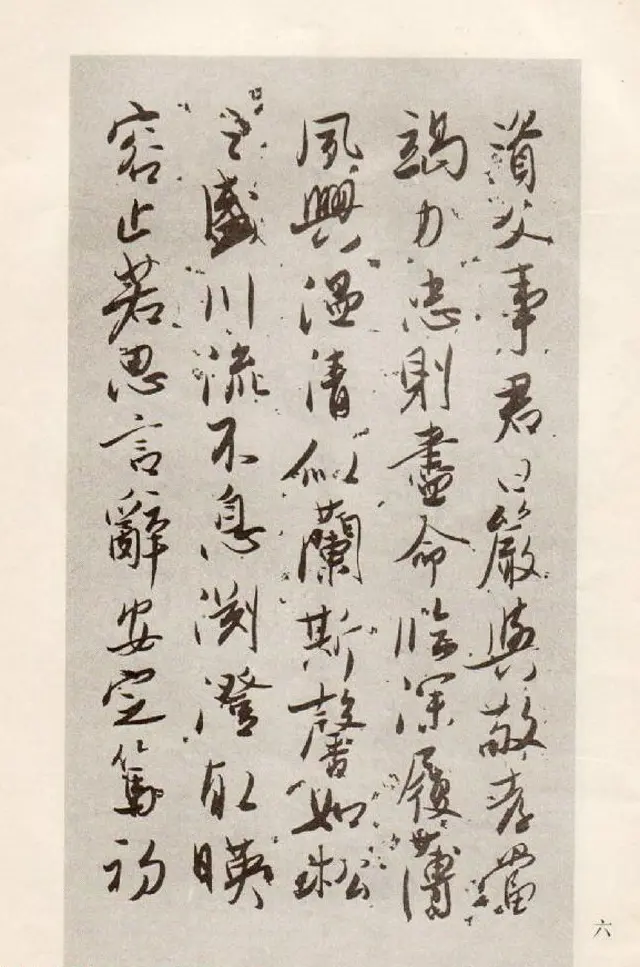 資父事君曰嚴與敬孝當
竭力忠則盡命臨深履薄
夙興溫清似蘭斯馨如松
之盛川流不息淵澄取暎
容止若思言辭安定篤初
六